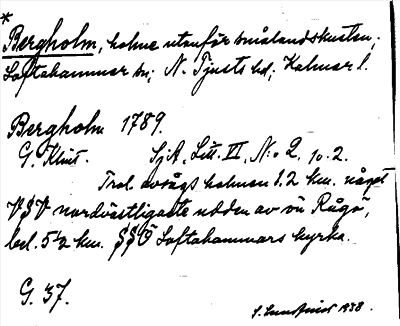 *
Bergholm, holme utanför smålandskusten;
Loftahammar sn; N. Tjusts hd; Kalmar l.
Bergholm 1789.
G. Klint. SjA, Litt. III, N:o 2, 10.2.
Trol. avsågs holmen 1.2 km. något
VSV nordvästligaste udden av ön Rågö,
bel. 5½ km. SSÖ Loftahammars kyrka.
G. 37.
1938.